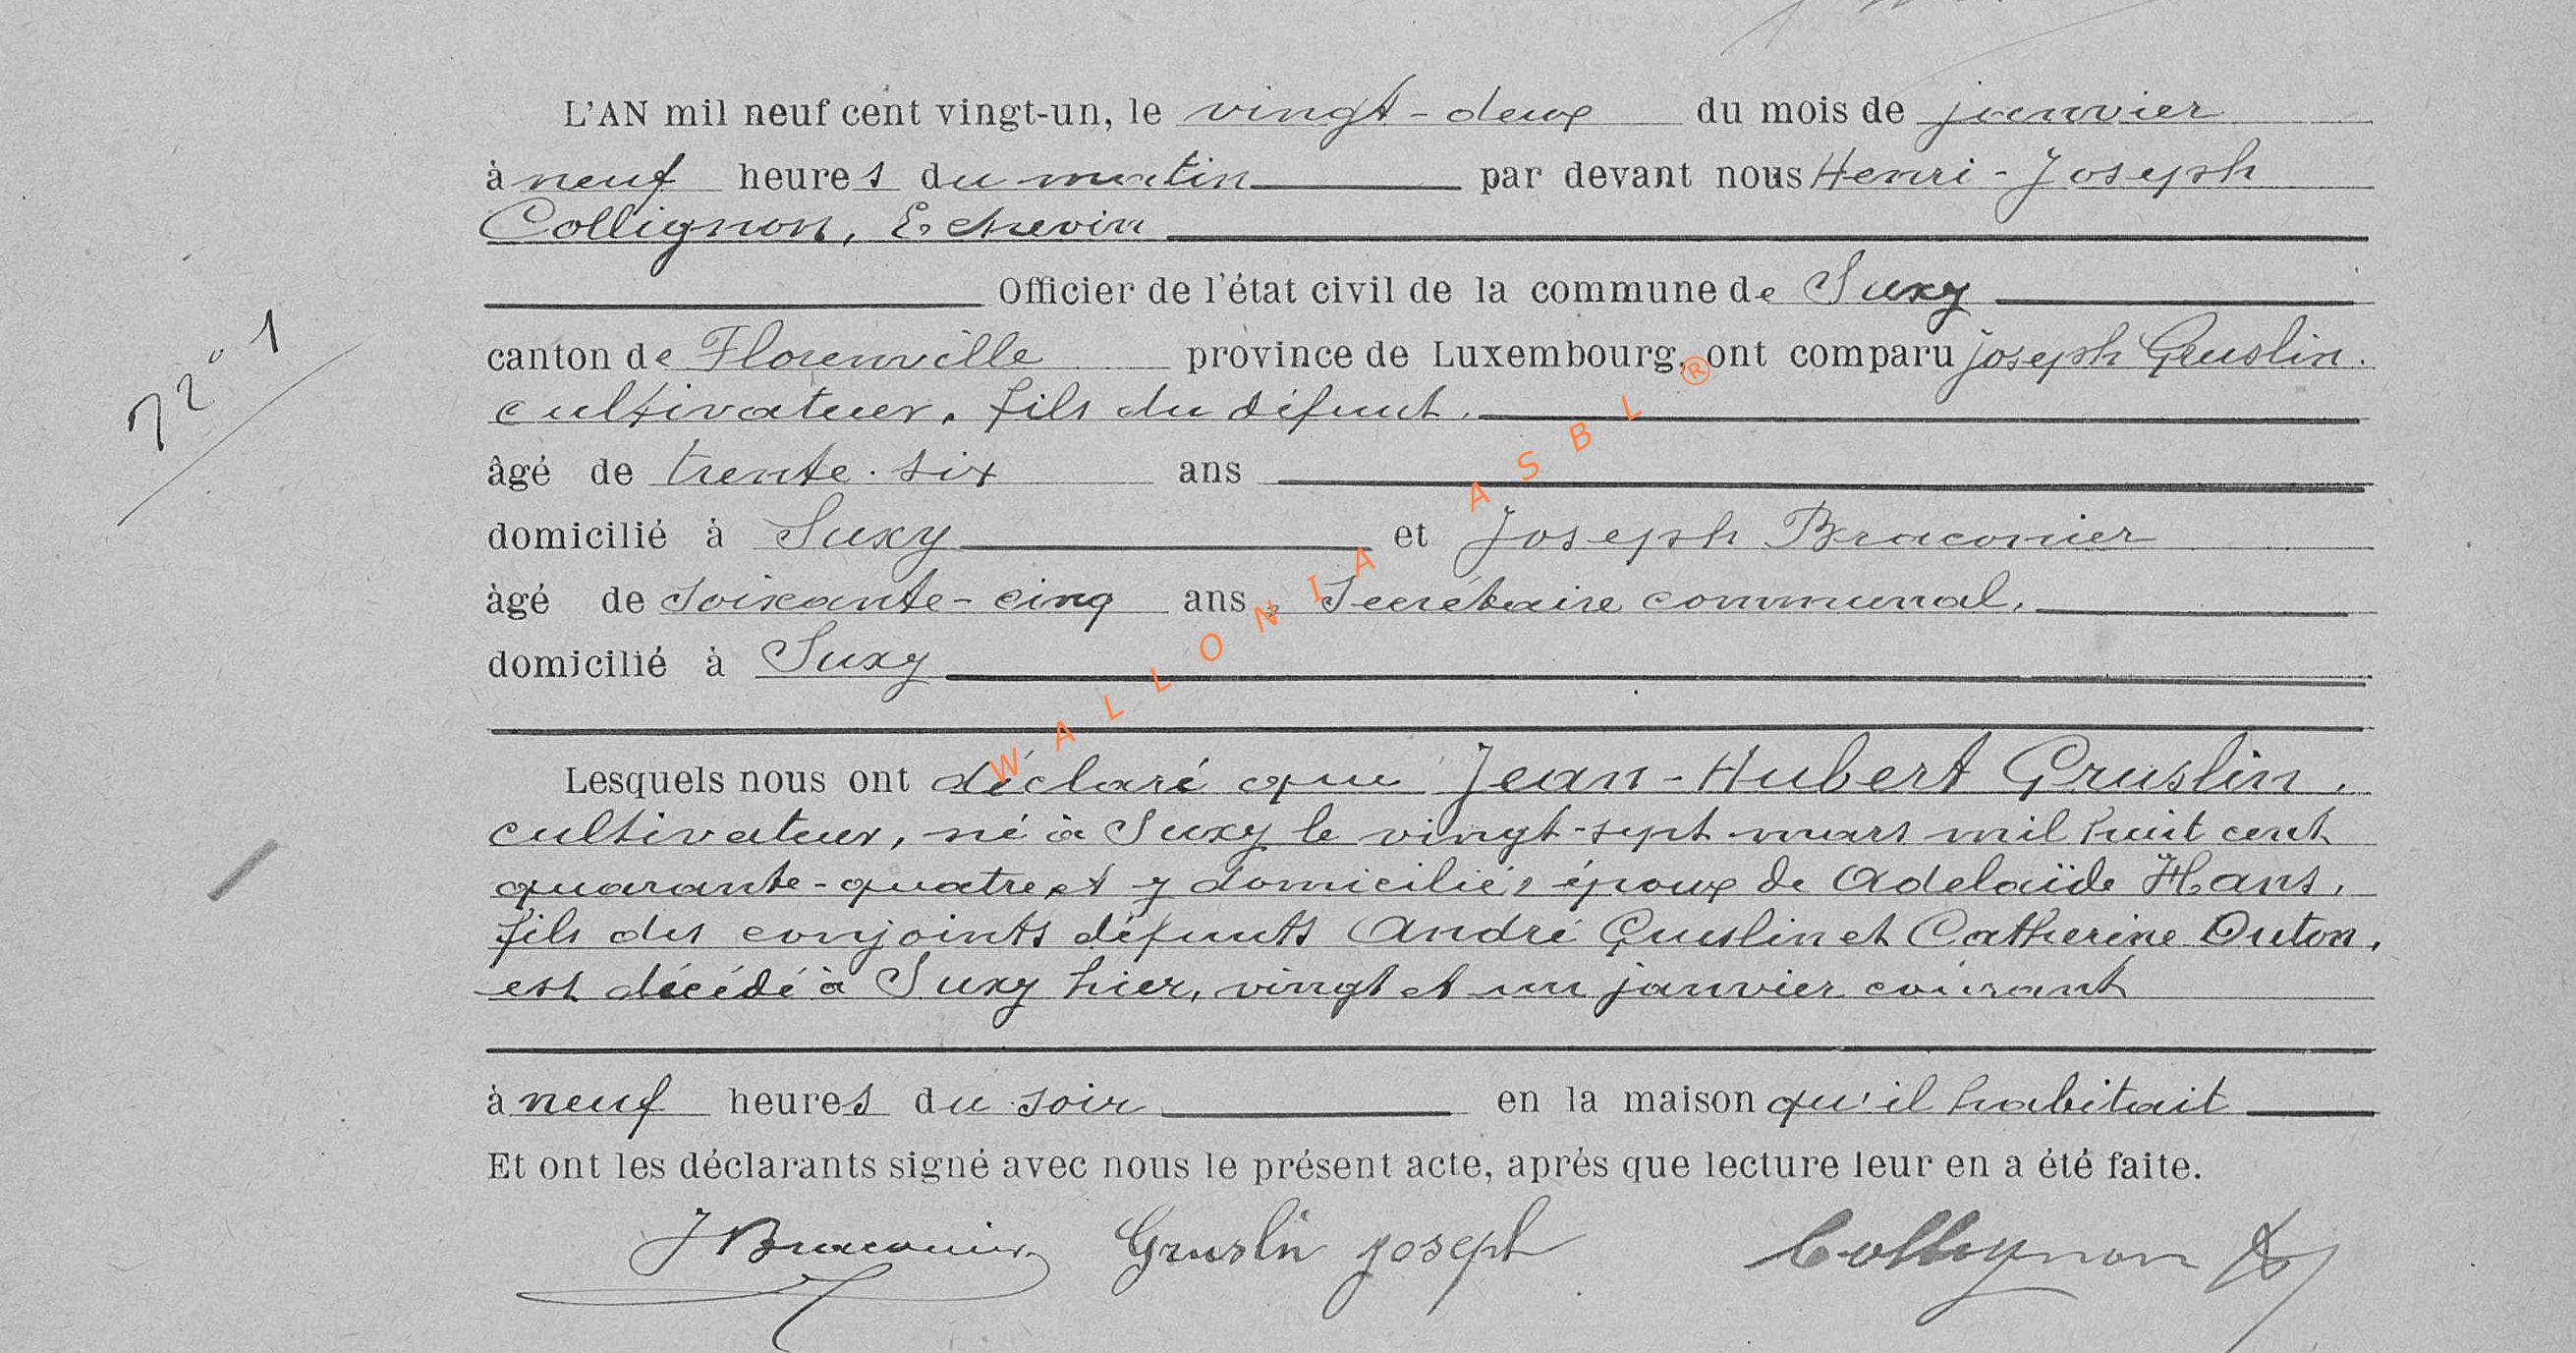 L'AN mil neuf cent vingt-un, le vingt-deux du mois de janvier
à neuf heures du matin par devant nous Henri-Joseph
Collignon, Echevin
Officier de l'état civil de la commune de Suxy
canton de Florenville province de Luxembourg, ont comparu joseph Gruslin.
cultivateur, fils du défunt.
âgé de trente-six ans
domicilié à Suxy et Joseph Braconier
âgé de soixante-cinq ans, Secrétaire communal,
domicilié à Suxy
Lesquels nous ont déclaré que Jean-Hubert Gruslin,
cultivateur, né à Suxy le vingt-sept mars mil huit cent
quarante-quatre et y domicilié, époux de Adelaïde Hans,
fils des conjoints défunts André Gruslin et Catherine Outon,
est décédé à Suxy hier, vingt et un janvier courant
à neuf heures du soir en la maison qu'il habitait
Et ont les déclarants signé avec nous le présent acte, après que lecture leur en a été faite.
J Braconier Gruslin joseph Collignon
N° 1
WALLONIA ASBL ®